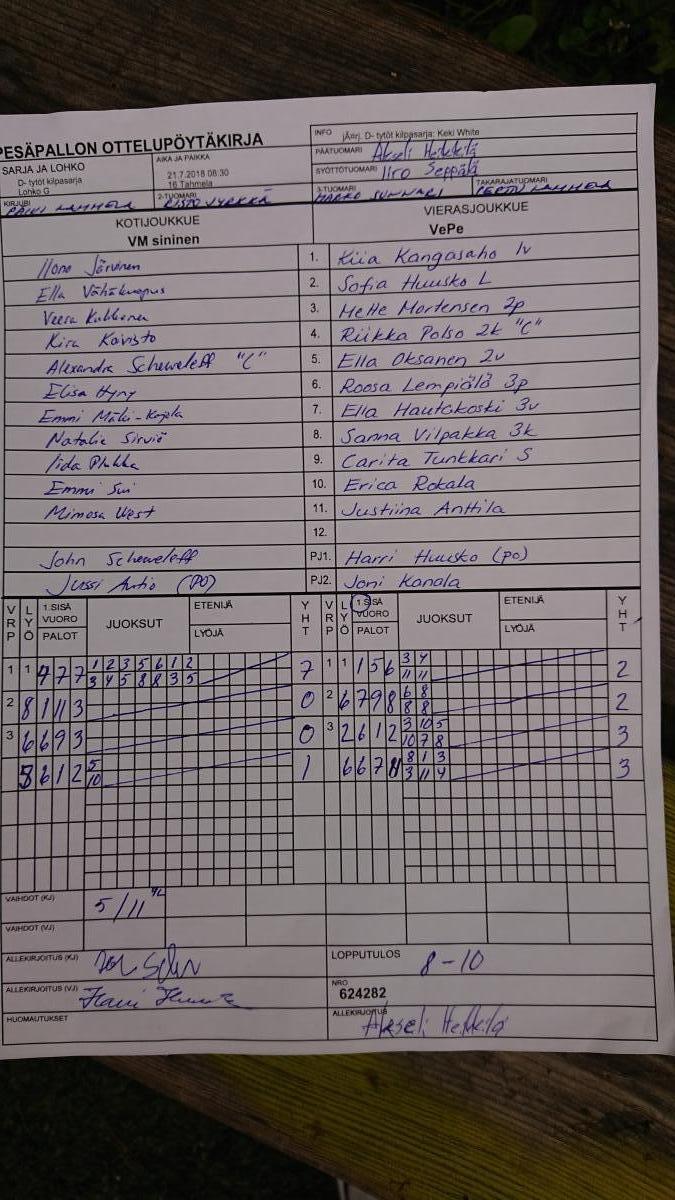 PESÄPALLON OTTELUPÖYTÄKIRJA
INFO jÄnrj. D- tytöt kilpasarja: Keki White
PÄÄTUOMARI Akseli Heikkilä
SARJA JA LOHKO
D- tytöt kilpasarja
Lohko G
AIKA JA PAIKKA
21.7.2018 08:30
16 Tahmela
SYÖTTÖTUOMARI Iiro Seppälä
KIRJURI PÄIVI
2-TUOMARI RISTO JYRKKÄ
3-TUOMARI
TAKARAJATUOMARI
KOTIJOUKKUE
VM sininen
VIERASJOUKKUE
VePe
Ilona Järvinen 1. Kiia Kangasaho 1v
Ella Vähäkuopus 2. Sofia Huusko L
Veera 3. Mette Mortensen 2p
Kira Koivisto 4. Riikka Polso 2k "C"
Alexandra Scheweleff "C" 5. Ella Oksanen 2v
Elisa Hyry 6. Roosa Lempiälä 3p
Emmi 7. Ella Hautakoski 3v
Natalie Sirviö 8. Sanna Vilpakka 3k
Iida 9. Carita Tunkkari S
Emmi 10. Erica Rokala
Mimosa West 11. Justiina Anttila
12.
John Scheweleff PJ1. Harri Huusko (PO)
Jussi Autio (PO) PJ2. Joni Kanala
VRP LYÖ 1.SISÄ VUORO PALOT JUOKSUT ETENIJÄ LYÖJÄ YHT VRP LYÖ 1.SISÄ VUORO PALOT JUOKSUT ETENIJÄ LYÖJÄ YHT
1 1 4 7 7 1 2 3 5 6 1 2 7 1 1 1 5 6 3 4 2
3 4 5 8 8 3 5 11 11
2 8 1 11 3 0 2 6 7 9 8 6 8 2
8 8
3 6 6 9 3 0 3 2 6 1 2 3 10 5 3
10 7 8
5 6 1 2 5 1 6 6 7 11 8 1 3 3
10 3 11 4
VAIHDOT (KJ) 5/11
VAIHDOT (VJ)
ALLEKIRJOITUS (KJ)
LOPPUTULOS 8-10
ALLEKIRJOITUS (VJ)
NRO
624282
HUOMAUTUKSET
ALLEKIRJOITUS Akseli Heikkilä